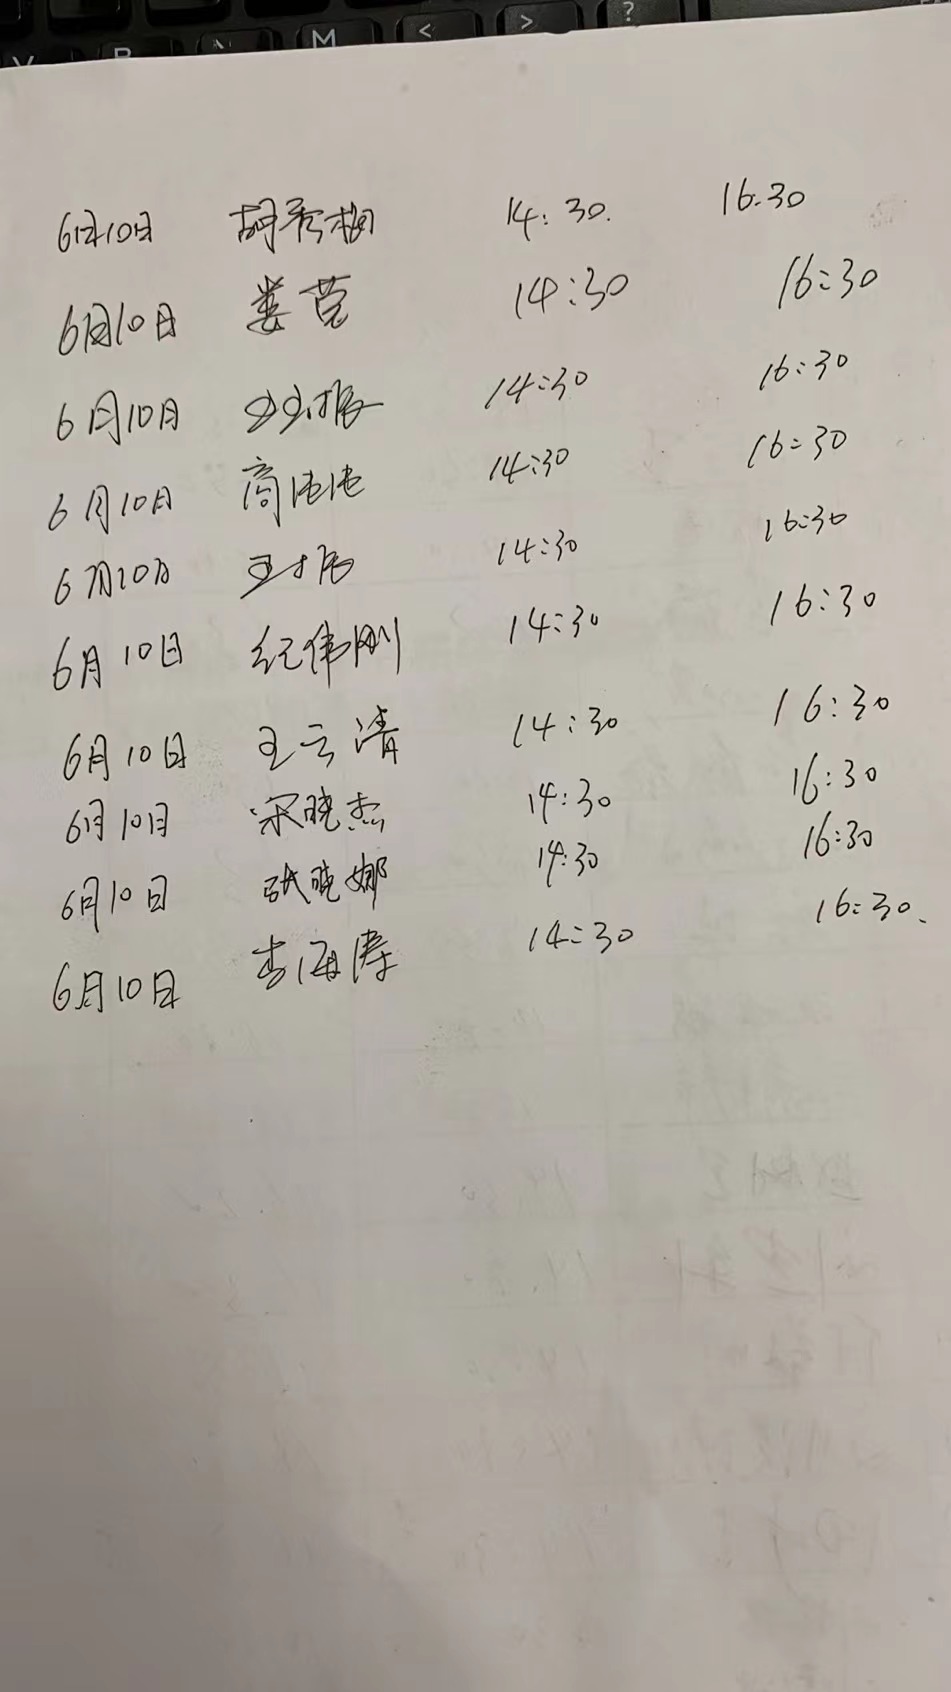 M < > ?
6月10日 胡秀梅 14:30. 16.30
6月10日 娄莞 14:30 16:30
6月10日 14:30 16:30
6月10日 商浩浩 14:30 16:30
6月10日 14:30 16:30
6月10日 纪伟刚 14:30 16:30
6月10日 王云清 14:30 16:30
6月10日 宋晓杰 14:30 16:30
6月10日 张晓娜 14:30 16:30
6月10日 李海涛 14:30 16:30.